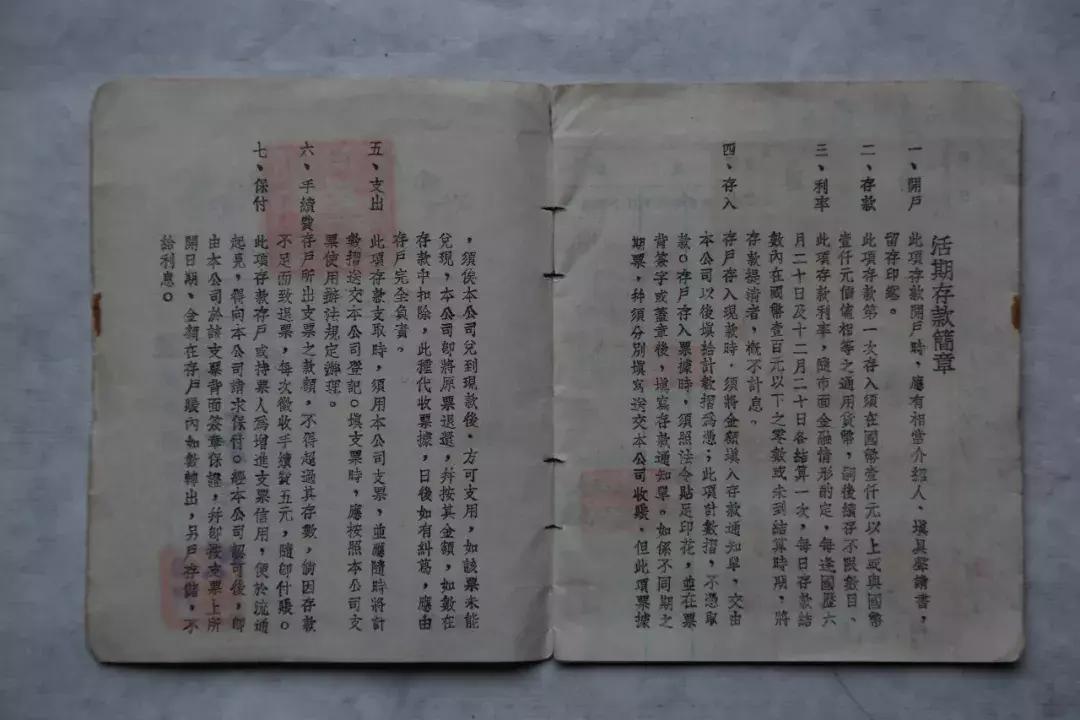 活期存款簡章
一、開戶　此項存款開戶時、應有相當介紹人、填具聲請書，
留存印鑑。
二、存款　此項存款第一次存入須在國幣壹仟元以上或與國幣
壹仟元價値相等之通用貨幣，嗣後續存不限數目、
三、利率　此項存款利率，隨市面金融情形酌定，每逢國歷六
月二十日及十二月二十日各結算一次，每日存款結
數內在國幣壹百元以下之零數或未到結算時期，將
存款提淸者，概不計息。
四、存入　存戶存入現款時．須將金額填入存款通知單，交由
本公司以後填給計數摺爲憑；此項計數摺，不憑取
款○存戶存入票據時，須照法令貼足印花，並在票
背簽字或蓋章後，填寫存款通知單。如係不同期之
期票，幷須分別填寫送交本公司收賬，但此項票據
，須俟本公司兌到現款後．方可支用，如該票未能
兌現，本公司卽將原票退還，幷按其金額，如數在
存款中扣除，此種代收票據，日後如有糾葛，應由
存戶完全負責。
五、支出　此項存款支取時，須用本公司支票，並應隨時將計
數摺送交本公司登記○填支票時，應按照本公司支
票使用辦法規定辦理。
六、手續費　存戶所出支票之款額，不得超過其存數，倘因存款
不足而致退票，每次徵收手續費五元，隨卽付賬○
七、保付　此項存款存戶或持票人爲增進支票信用，便於流通
起見，得向本公司請求保付○經本公司認可後，卽
由本公司於該支票背面簽章保證，幷卽按支票上所
開日期、金額在存戶賬內如數轉出，另戶存儲，不
給利息○